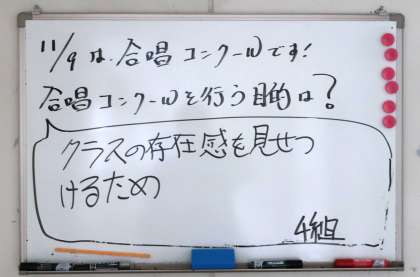 11/9は、合唱コンクールです!
合唱コンクールを行う目的は?
クラスの存在感を見せつ
けるため
4組